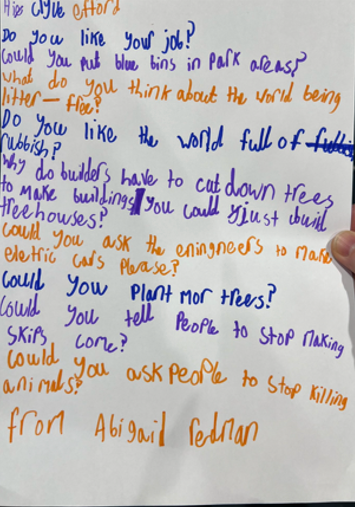 Hi Clyde efford
Do you like your job?
Could you put blue bins in park areas?
what do you think about the world being
litter-free?
Do you like the world full of
rubbish?
Why do builders have to cut down trees
to make buildings you could just build
treehouses?
could you ask the eningneers to make
eletric cars please?
Could you plant mor trees?
Could you tell people to stop making
skips come?
Could you ask people to stop killing
animals?
from Abigail Redman